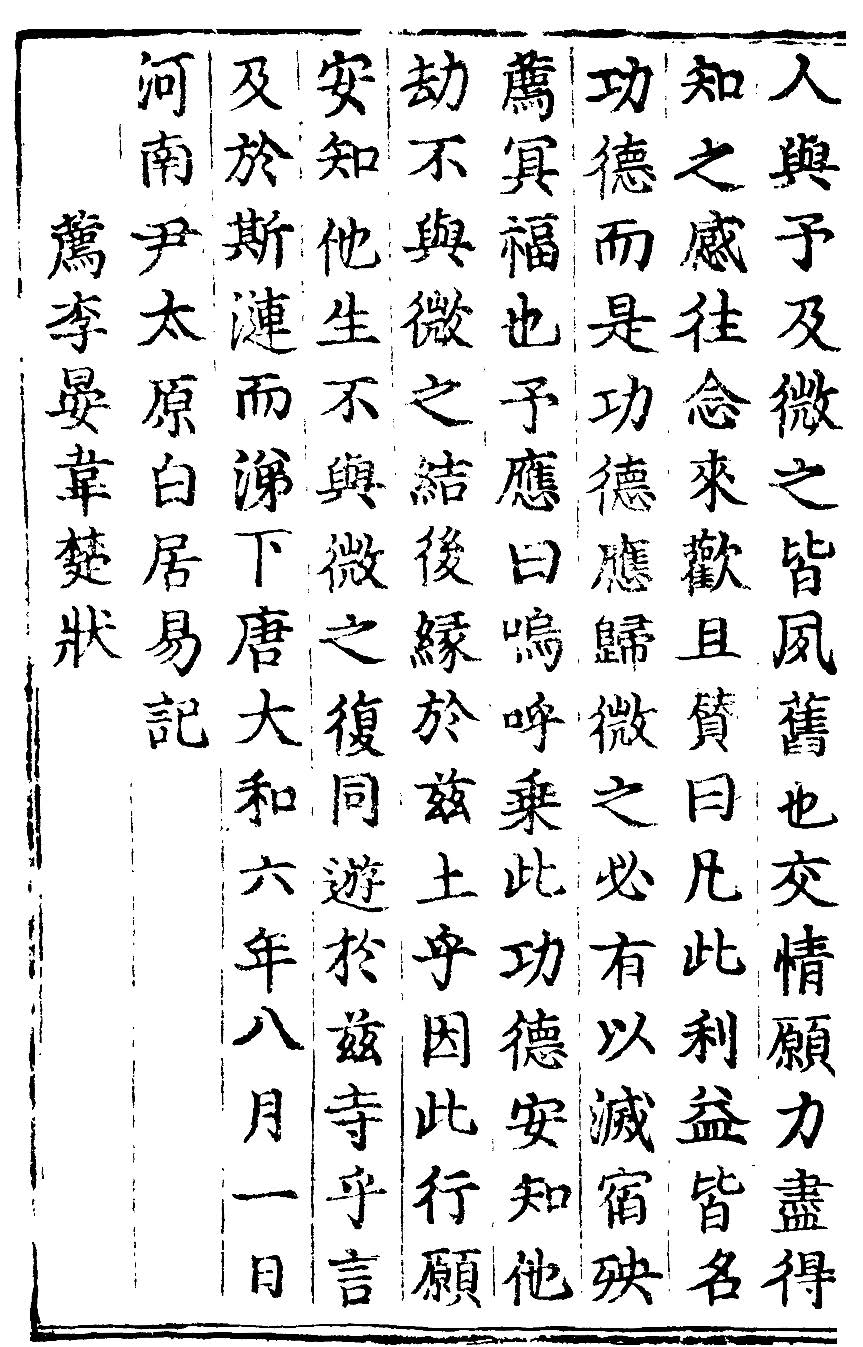 人與予及微之皆夙舊也交情願力盡得
知之感往念來歡且賛曰凡此利益皆名
功德而是功德應歸微之必有以滅宿殃
薦冥福也予應曰嗚呼乗此功德安知他
劫不與微之結後緣於茲土乎因此行願
安知他生不與微之復同遊於茲寺乎言
及於斯漣而涕下唐大和六年八月一日
河南尹太原白居易記
薦李晏韋楚狀